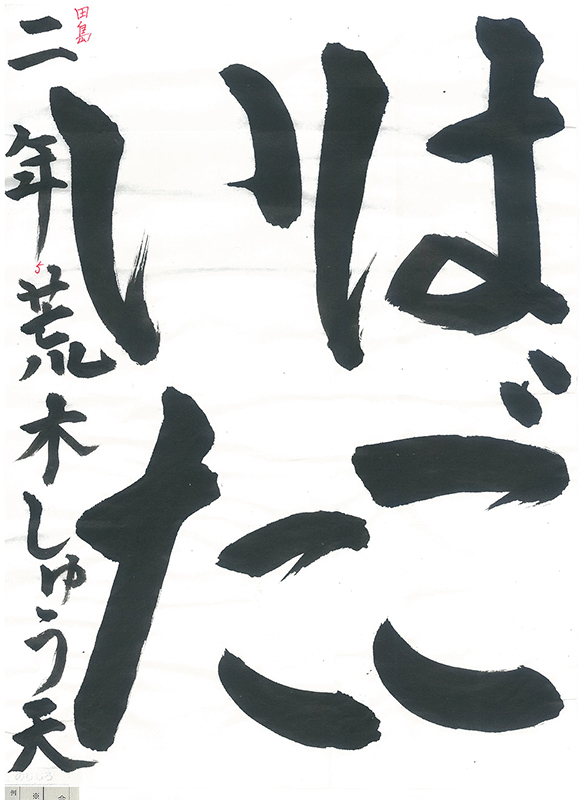 はご
いた
二年荒木しゅう天
田島
例
※